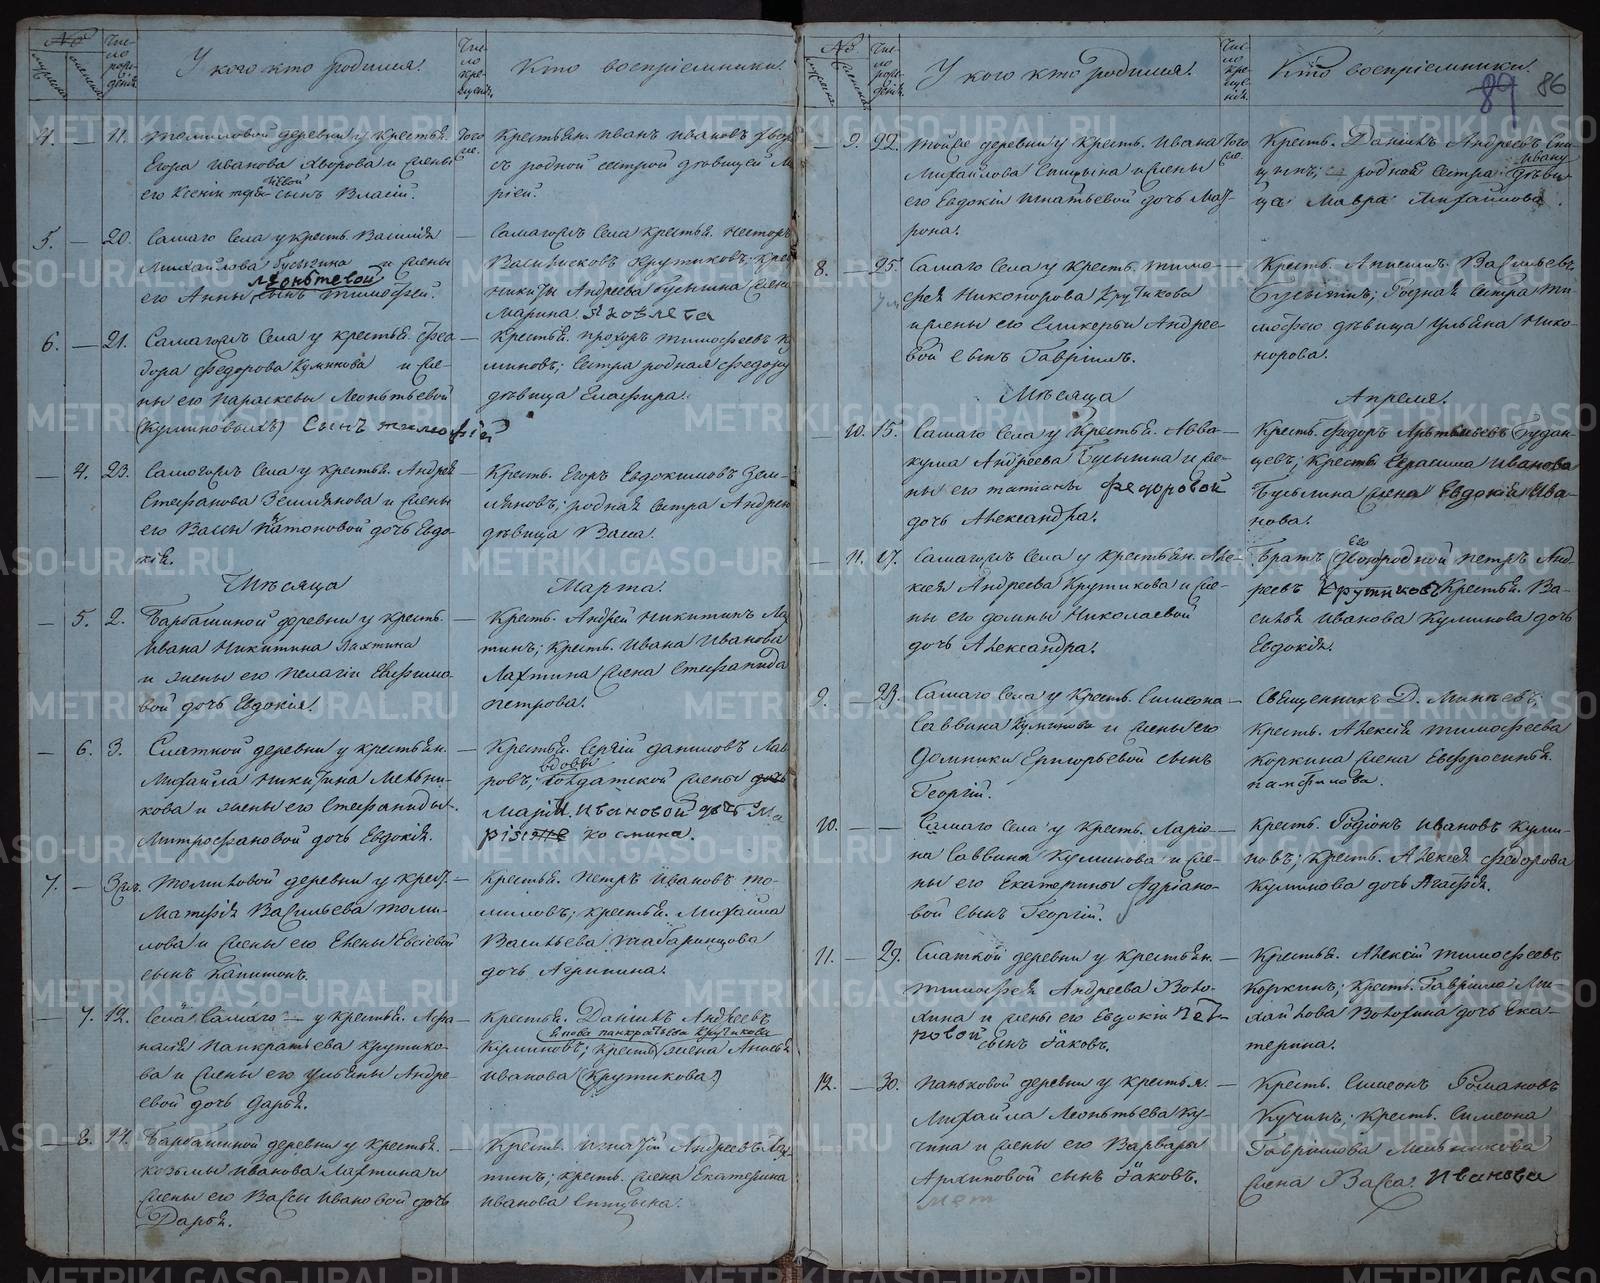 №
Чис-
ло
рож-
денiя
У кого кто родился.
Чис-
ло
кре-
щенiя.
Кто воспрiемники.
4. — 11. Томиловой деревни у крестья.
Егора Иванова и жены
его Ксенiи сынъ Власiй.
Того
же.
Крестьян. Иванъ Ивановъ
съ родной сестрой дѣвицей Ма-
рiей.
5. — 20. Самаго Села у крестъ. Василiя
Михайлова Бусыгина и жены
Леонтьевой
его Анны сынъ Тимофей.
—
Самагожъ Села крестья. Несторъ
Крутиковъ; крес.
Никиты Андреева Бусыгина жена
Марина Яковлева
6. — 21. Самагожъ Села у крестья. Фео-
дора Федорова Куминова и же-
ны его Параскевы Леонтьевой
(Куминовыхъ) Сынъ Тимофей
—
Крестья. Прохоръ Тимофеевъ Ку-
миновъ; Сестра родная Федору
дѣвица Глафира.
— 4. 23. Самогожъ Села у крестья. Андрея
Стефанова Землянова и жены
его Вассы Платоновой дочь Евдо-
кiя.
—
Крестъ. Егоръ Евдокимовъ Зем-
ляновъ; родная Сестра Андрею
дѣвица Васса.
Мѣсяца Марта.
— 5. 2. Барбашиной деревни у крестъ.
Ивана Никитина Лахтина
и жены его Пелагiи Евфимо-
вой дочь Евдокiя.
—
Крестъ. Андрей Никитинъ Лах-
тинъ; крестъ. Ивана Иванова
Лахтина жена Стефанида
Петрова.
— 6. 3. Слаткой деревни у крестьян.
Михайла Никитина Мельни-
кова и жены его Стефаниды
Митрофановой дочь Евдокiя.
—
Крестья. Сергiй Даниловъ Лав-
вдовы
ровъ; солдатской жены дочь
Марiи Ивановой дочь Ма
рiя Космина.
7. — 3 ч. Томиловой деревни у крест.
Матфiя Васильева Томи-
лова и жены его Елены Евсiевой
сынъ Капитонъ.
—
Крестья. Петръ Ивановъ То-
миловъ; крестья. Михайла
Васильева Табаринцова
дочь Агрипина.
— 7. 12. Села Самаго у крестья. Афа-
насiя Панкратьева Крутико-
ва и жены его Ульяны Андре-
евой дочь Дарья.
—
Крестья. Данiилъ Андреевъ
Якова Панкратьева Крутикова
Куминовъ; крестъ. жена Анисья
Иванова (Крутикова)
— 8. 14. Барбашиной деревни у крестья.
Козьмы Иванова Лахтина и
жены его Вассы Ивановой дочь
Дарья.
—
Крестъ. Игнатiй Андреевъ Лах-
тинъ; крестъ. жена Екатерина
Иванова Спицына.
№
Чис-
ло
рож-
денiя.
У кого кто родился.
Чис-
ло
кре-
ще-
нiя.
Кто воспрiемники.
89 86
— 9. 22. Тойже деревни у крестъ. Ивана
Михайлова Спицына и жены
его Евдокiи Игнатьевой дочь Мат-
рона.
Того
же.
Крестъ. Данiилъ Андреевъ Спи-
Ивану
цынъ; родная Сестра дѣви-
ца Мавра Михайлова.
8. — 25. Самаго Села у крестъ. Тимо-
фея Никонорова Крутикова
и жены его Гликерьи Андрее-
вой сынъ Гаврiилъ.
—
Крестъ. Анисимъ Васильевъ
Бусыгинъ; Родная Сестра Ти-
мофею дѣвица Ульяна Нико-
норова.
Мѣсяца Апреля.
— 10. 15. Самаго Села у крестья. Авва-
кума Андреева Бусыгина и же-
ны его Татiаны Федоровой
дочь Александра.
—
Крестъ. Федоръ Артемьевъ Будан-
цевъ; крестъ. Герасима Иванова
Бусыгина жена Евдокiя Ива-
нова.
— 11. 17. Самагожъ Села у крестьян. Але-
ксiя Андреева Крутикова и же-
ны его Домны Николаевой
дочь Александра.
—
Братъ его двоюродной Петръ Анд-
реевъ Крутиковъ крестья. Ва-
силья Иванова Куминова дочь
Евдокiя.
9. — 23. Самаго Села у крестъ. Симеона
Саввина Куминова и жены его
Домники Григорьевой сынъ
Георгiй.
—
Священникъ Д. Минѣевъ;
крестъ. Алексiя Тимофеева
Коркина жена Евфросинья
Памфилова.
10. — — Самаго Села у крестъ. Ларiо-
на Саввина Куминова и же-
ны его Екатерины Адрiано-
вой сынъ Георгiй.
—
Крестъ. Родiонъ Ивановъ Куми-
новъ; крестъ. Алексiя Федорова
Куминова дочь Агафiя.
11. — 29. Слаткой деревни у крестьян.
Тимофея Андреева Воло-
хина и жены его Евдокiи Пет-
ровой сынъ Iаковъ.
—
Крестья. Алексiй Тимофеевъ
Коркинъ; крестъ. Гаврiила Ми-
хайлова Волохина дочь Ека-
терина.
12. — 30. Паньковой деревни у крестья.
Михайла Леонтьева Ку-
чина и жены его Варвары
Архиповой сынъ Iаковъ.
—
Крестъ. Симеонъ Романовъ
Кучинъ; крестъ. Симеона
Гаврiилова Мельникова
жена Васса Иванова
METRIKI.GASO-URAL.RU